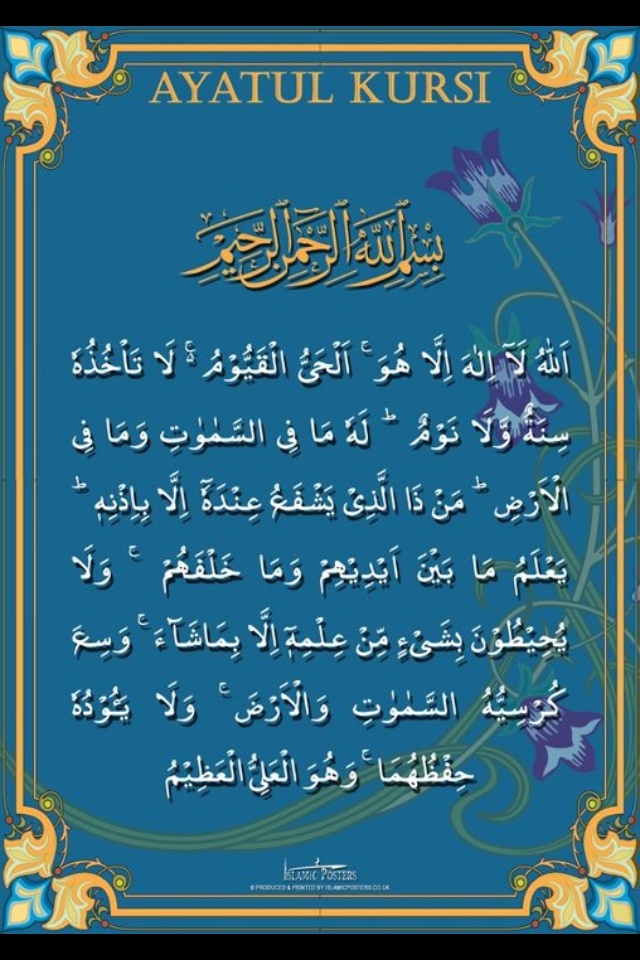 AYATUL KURSI
بِسْمِ ٱللَّهِ ٱلرَّحْمَٰنِ ٱلرَّحِيمِ
اَللّٰهُ لَآ اِلٰهَ اِلَّا هُوَ ۚ اَلْحَىُّ الْقَيُّوْمُ ۚ لَا تَاْخُذُهٗ
سِنَةٌ وَّلَا نَوْمٌ ؕ لَهٗ مَا فِى السَّمٰوٰتِ وَمَا فِى
الْاَرْضِ ؕ مَنْ ذَا الَّذِىْ يَشْفَعُ عِنْدَهٗٓ اِلَّا بِاِذْنِهٖ ؕ
يَعْلَمُ مَا بَيْنَ اَيْدِيْهِمْ وَمَا خَلْفَهُمْ ۚ وَلَا
يُحِيْطُوْنَ بِشَىْءٍ مِّنْ عِلْمِهٖٓ اِلَّا بِمَاشَآءَ ۚ وَسِعَ
كُرْسِيُّهُ السَّمٰوٰتِ وَالْاَرْضَ ۚ وَلَا يَـُٔوْدُهٗ
حِفْظُهُمَا ۚ وَهُوَ الْعَلِىُّ الْعَظِيْمُ
ISLAMIC POSTERS
© PRODUCED & PRINTED BY ISLAMICPOSTERS.CO.UK